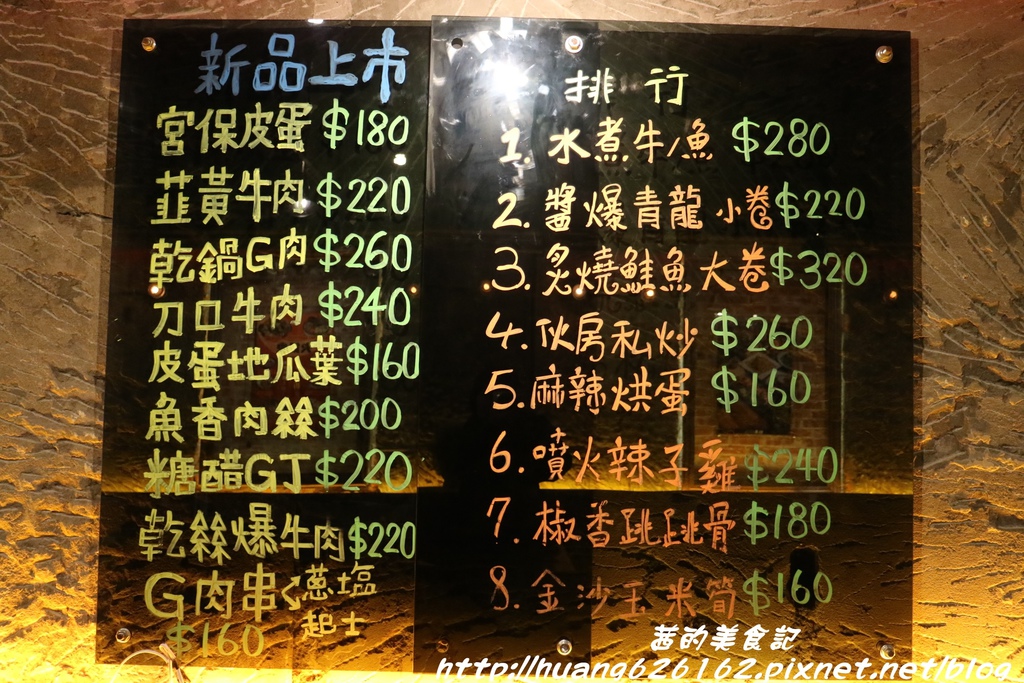 新品上市
宮保皮蛋 $180
韮黃牛肉 $220
乾鍋G肉 $260
刀口牛肉 $240
皮蛋地瓜葉 $160
魚香肉絲 $200
糖醋G丁 $220
乾絲爆牛肉 $220
G肉串 蔥塩
起士
$160
排行
1. 水煮牛/魚 $280
2. 醬爆青龍小卷 $220
3. 炙燒鮭魚大卷 $320
4. 伙房私炒 $260
5. 麻辣烘蛋 $160
6. 噴火辣子雞 $240
7. 椒香跳跳骨 $180
8. 金沙玉米筍 $160
茜的美食記
http://huang626162.pixnet.net/blog